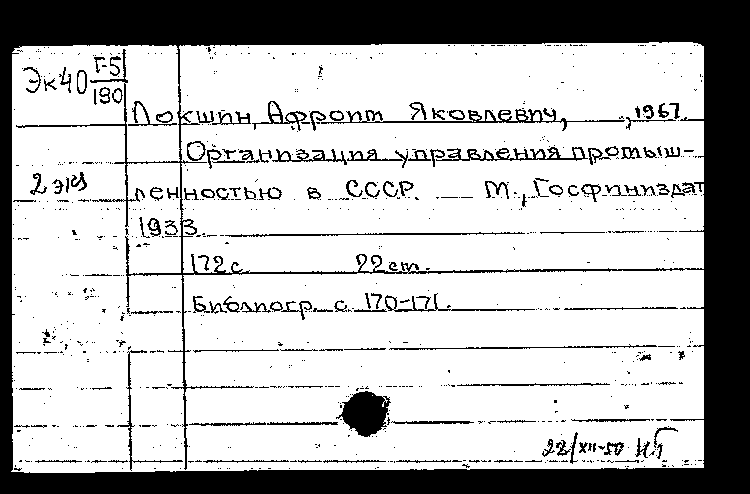 Эк40 Г-5
190
Локшин, Афроим Яковлевич, ,1967.
Организация управления промыш-
2 экз ленностью в СССР. М., Госфиниздат
1933.
172 с. 22 cm.
Библиогр. с. 170-171.
22/XII-50